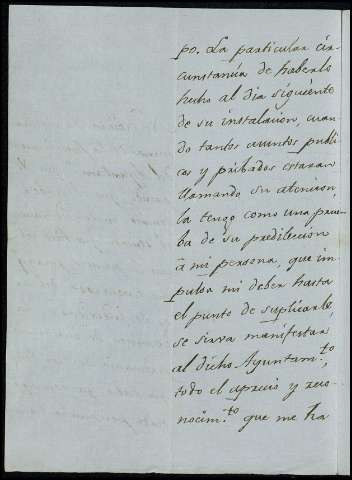 po. La particular cir-
cunstancia de haberlo
hecho al dia siguiente
de su instalacion, cuan-
do tantos asuntos publi-
cos y pribados estaran
llamando su atencion,
la tengo como una prue-
ba de su predileccion
á mi persona, que im-
pulsa mi deber hasta
el punto de suplicarle,
se sirva manifestar
al dicho Ayuntam.to,
todo el aprecio y reco-
nocim.to que me ha